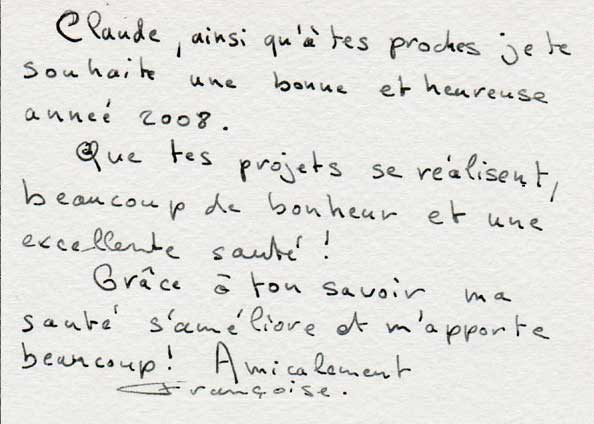 Claude, ainsi qu'à tes proches je te
souhaite une bonne et heureuse
anneé 2008.
Que tes projets se réalisent,
beaucoup de bonheur et une
excellente santé !
Grâce à ton savoir ma
santé s'améliore et m'apporte
beaucoup! Amicalement
Françoise.